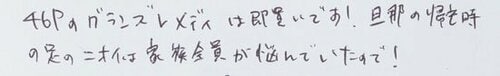 46Pのグランズレメディは即買いです!旦那の帰宅時
の足のニオイは家族全員が悩んでいたので!